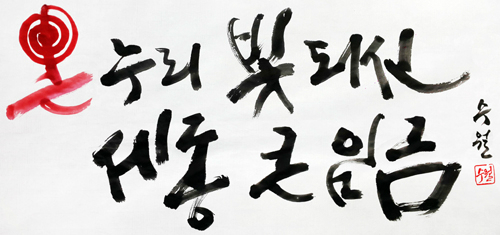 온누리 빛 되신
세종 큰 임금